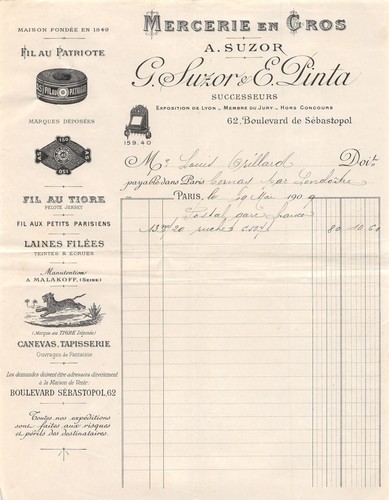 MAISON FONDÉE EN 1849
FIL AU PATRIOTE
FIL AU PATRIOTE
MARQUES DÉPOSÉES
FIL AU TIGRE
PELOTE JERSEY
FIL AUX PETITS PARISIENS
LAINES FILÉES
TEINTES & ECRUES
Manutention
A MALAKOFF, (SEINE)
(Marque au TIGRE Déposée)
CANEVAS, TAPISSERIE
Ouvrages de Fantaisie
Les demandes doivent être adressées directement
à la Maison de Vente.
BOULEVARD SÉBASTOPOL, 62
Toutes nos expéditions
sont faites aux risques
et périls des destinataires.
MERCERIE EN GROS
A. SUZOR
G. Suzor & E. Pinta
SUCCESSEURS
EXPOSITION DE LYON _ MEMBRE DU JURY _ HORS CONCOURS
62, Boulevard de Sébastopol
159.40
Mr Louis Trillard Doit
payable dans Paris Cernay par
PARIS, le 20 Mai 1909
Postal gare
13 20 ruches 80 10 60